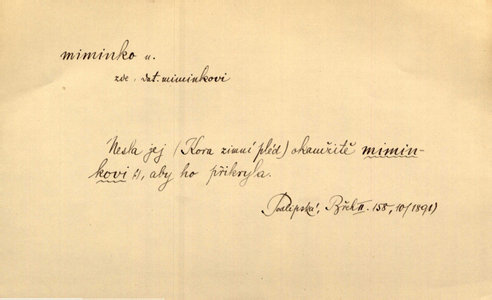 miminko n.
zde, dat. miminkovi
Nesla jej (Kora zimní pléd) okamžitě mimin-
kovi s), aby ho přikryla.
Podlipská, Břeh II. 158, 10/1891)